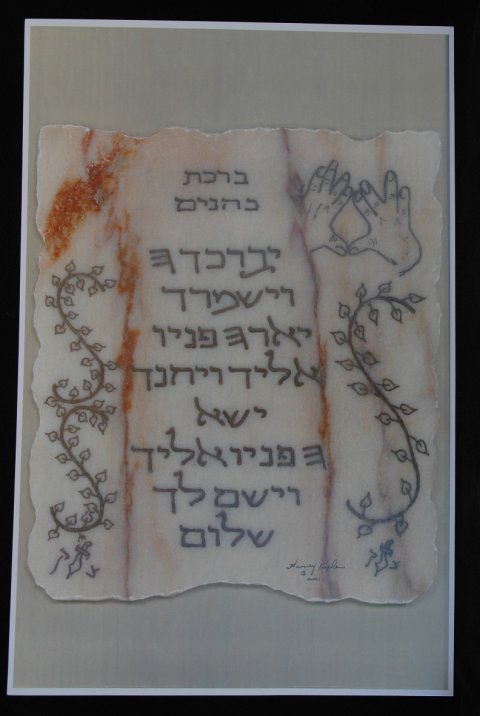 ברכת
כהנים
יברכך ה
וישמרך
יאר ה פניו
אליך ויחנך
ישא
ה פניו אליך
וישם לך
שלום